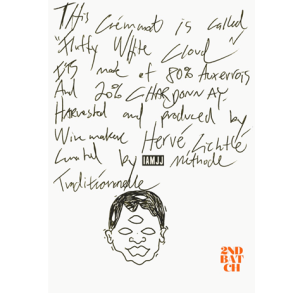 This Crémant is called
"Fluffy White Cloud"
It's made of 80% Auxerrois
And 20% CHARDONNAY.
Harvested and produced by
Winemaker Hervé Lichtlé
Curated by IAMJJ Méthode
Traditionnelle
2ND
BAT
CH